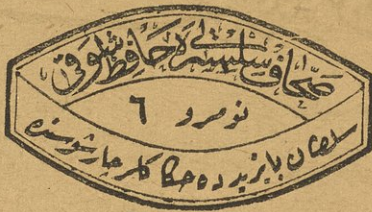 صحاف سليسترەلی حافظ شوقی
نومرو ٦
سلطان بايزيدده حكاكلر چارشوسنده